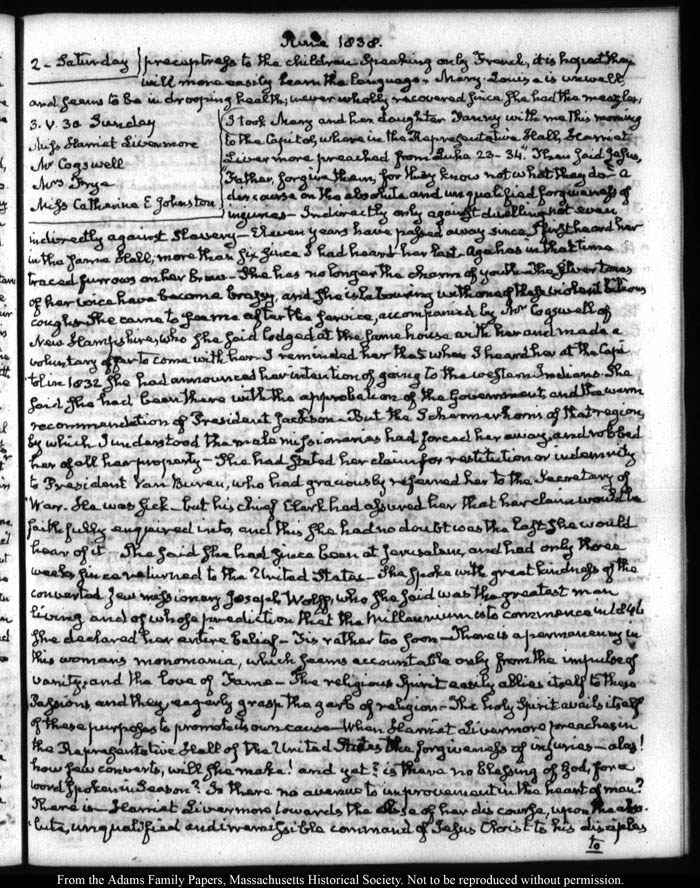 June 1838.
2 - Saturday preceptress to the children speaking only French, it is hoped they
will more easily learn the language - Mary-Louisa is unwell,
and seems to be in drooping health; never wholly recovered since she had the measles,
3. V. 30 Sunday I took Mary and her daughter Fanny with me this morning
Miss Harriet Livermore to the Capitol, where in the Representative Hall, Harriet
Mr Cogswell Livermore preached from Luke 23-34. "Then said Jesus,
Mrs Frye Father, forgive them, for they know not what they do" - a
Miss Catherine E Johnston discourse on the absolute and unqualified forgiveness of
injuries - Indirectly only against duelling not even
indirectly against Slavery - Eleven years have passed away since I first heard her
in the same Hall, more than six since I had heard her last - Age has in that time
traced furrows on her Brow - She has no longer the charm of youth - The silver tones
of her voice have become brassy, and she is labouring with one of these violent bilious
coughs. She came to see me after the service, accompanied by Mr Cogswell of
New Hampshire, who she said lodged at the same house with her and made a
voluntary offer to come with her - I reminded her that when I heard her at the Capi-
tol in 1832 she had announced her intention of going to the western Indians. She
said she had been there with the approbation of the Government, and the warm
recommendation of President Jackson - But the Schermerhorns of that region,
by which I understood the male missionaries had forced her away, and robbed
her of all her property - She had stated her claim for restitution or indemnity
to President Van Buren, who had graciously referred her to the Secretary of
War. He was sick - but his chief Clerk had assured her that her claim would be
faithfully enquired into, and this she had no doubt was the last she would
hear of it - She said she had since been at Jerusalem, and had only three
weeks since returned to the United States - She spoke with great kindness of the
converted Jew missionary Joseph Wolff, who she said was the greatest man
living and of whose prediction that the Millennium is to commence in
she declared her entire belief - Tis rather too soon - There is a permanency in
this womans monomania, which seems accountable only from the impulse of
vanity, and the love of Fame - The religious Spirit easily allies itself to these
Passions, and they eagerly grasp the garb of religion - The holy Spirit avails itself
of these purposes to promote its own cause - When Harriet Livermore preaches in
the Representative Hall of the United States the forgiveness of injuries - alas!
how few converts, will she make! and yet? is there no blessing of God, for a
word spoken in Season? Is there no avenue to improvement in the heart of man?
There is - Harriet Livermore towards the close of her discourse, upon the abso-
lute, unqualified and irremissible command of Jesus Christ to his disciples
to
From the Adams Family Papers, Massachusetts Historical Society. Not to be reproduced without permission.